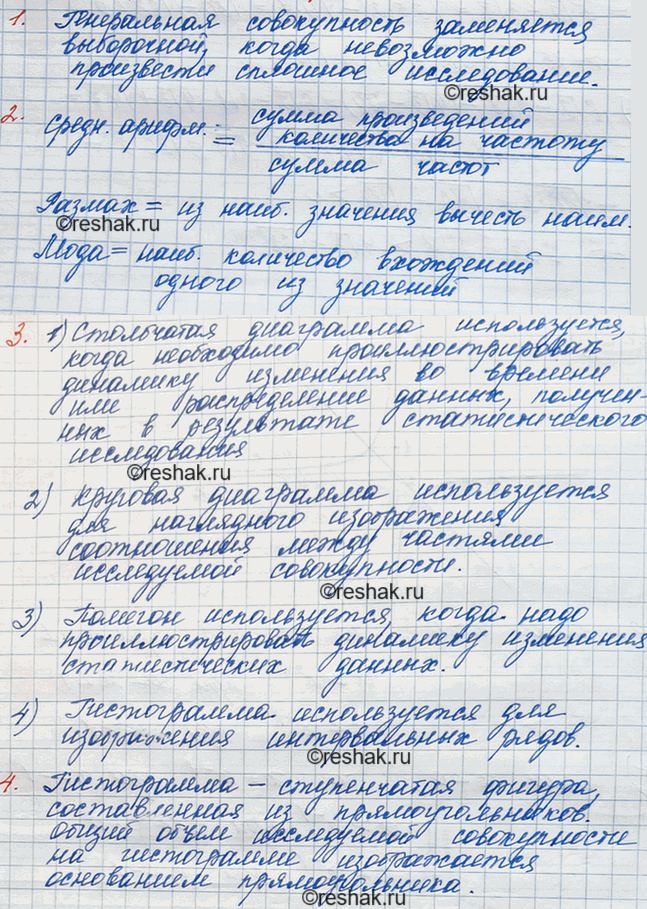 1. Генеральная совокупность заменяется
выборочной, когда невозможно
произвести сплошное исследование.
©reshak.ru
2. средн. арифм. = сумма произведений
количества на частоту
сумма частот
Размах = из наиб. значения вычесть наим.
©reshak.ru
Мода = наиб. количество вхождений
одного из значений
3. 1) Столбчатая диаграмма используется,
когда необходимо проиллюстрировать
динамику изменения во времени
или распределение данных, получен-
ных в результате статистического
исследования
©reshak.ru
2) Круговая диаграмма используется
для наглядного изображения
соотношения между частями
исследуемой совокупности.
©reshak.ru
3) Полигон используется, когда надо
проиллюстрировать динамику изменения
статистических данных.
4) Гистограмма используется для
изображения интервальных рядов.
©reshak.ru
4. Гистограмма – ступенчатая фигура,
составленная из прямоугольников.
Общий объем исследуемой совокупности
на гистограмме изображается
основанием прямоугольника.
©reshak.ru